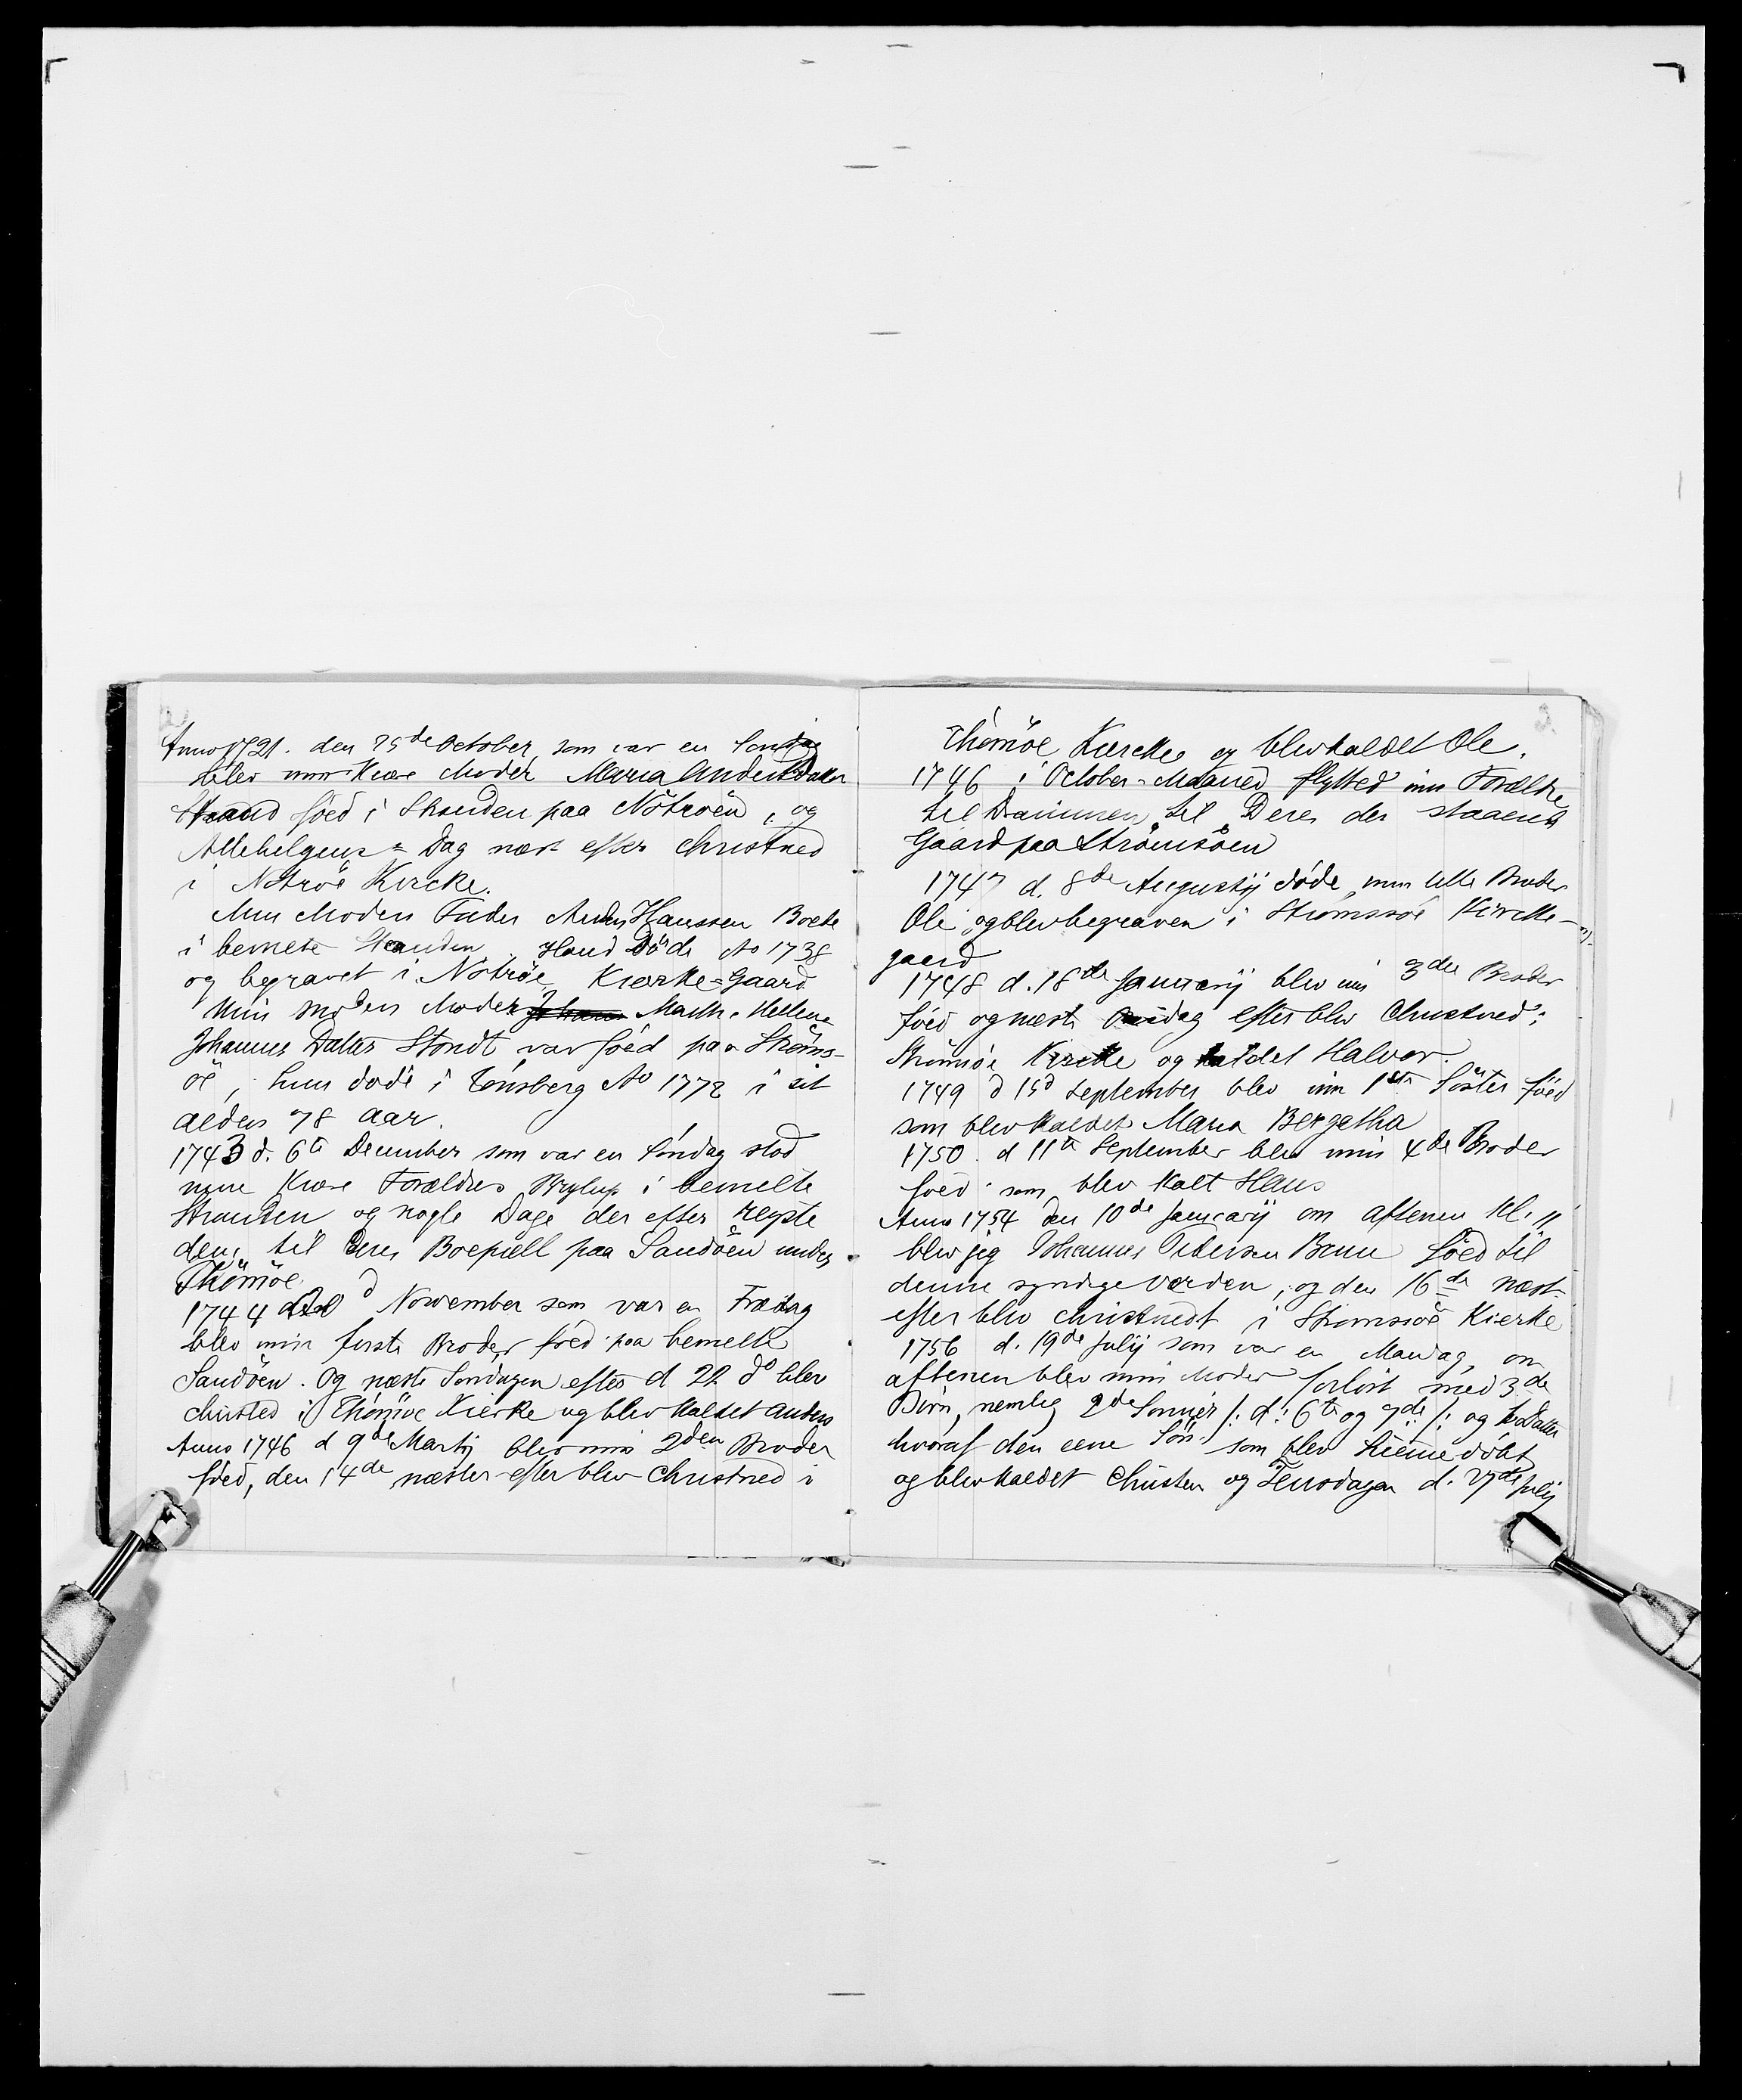 Anno 1721. den 25de October som var en Sondag
blev min Kiære Moder Maria Anders Datter
Strand föed i Stranden paa Nötröen, og
Allehelgens = Dag næst efter christned
i Nötröe Kircke.
Min Moders Fader Anders Hanssen Boede
i bemelte Stranden, Hand Döde Ao 1738
og begravet i Nötröe Kierke=Gaard
Min Moders Moder Marthe Hellene
Johannes Datter Stondt var föed paa Ströms-
öe, hun döde i Tönsberg Ao 1772 i sit
alders 78 aar.
1743 d. 6te December som var en Söndag stod
mine Kiære Forældres Brylup i bemelte
Stranden og nogle Dage der efter reyste
den til deres Boepæll paa Sandöen under
Thömöe
1744 d 20 d November som var en Fredag
blev min förste Broder föed paa bemelte
Sandöen. Og næste Söndagen efter d 22 do blev
christed i Thömöe Kierke og blev kaldet Anders
Anno 1746 d 9de Martij blev min 2den Broder
föed, den 14de næster efter blev Christned i
3
Thömöe Kiercke og blev kaldet Ole.
1746 i October=Maaned flytted min Forældre
til Drammen til Deres der staaende
Gaard paa Strömsöen
1747 d. 8de Augustij döde min lille Broder
Ole, og blev begraven i Strömssöe Kircke-
gaard
1748 d. 18de Januarij blev min 3die Broder
föed og næste Onsdag efter blev Christned i
Strömsöe Kircke og kaldet Halvor.
1749 d 15d September blev min 1ste Söster föed
som blev kaldet Maria Bergetha
1750 d 11te September blev min 4de Broder
föed som blev kalt Hans
Anno 1754 den 10de Januarij om aftenen Kl. 11
blev jeg Johannes Pedersen Bruun föed til
denne syndige Verden, og den 16de næst
efter blev christnedt i Strömssöe Kierke
1756 d. 19de Julij som var en Mandag, om
aftenen blev min Moder forlöst med 3de
Börn, nemlig 2de Sönner /: d: 6te og 7de /: og 1 Datter
hvoraf den eene Sön som blev hieme döbt
og blev kaldet Christen og Tensdagen d. 27de Julij